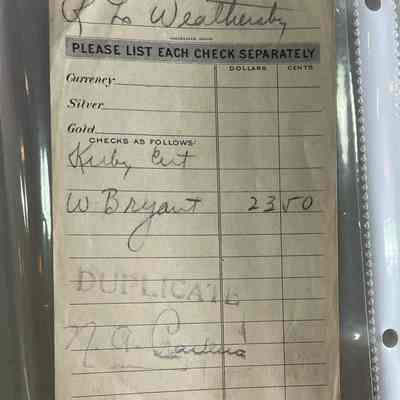 Weathersby
PLEASE LIST EACH CHECK SEPARATELY
DOLLARS CENTS
Currency
Silver
Gold
CHECKS AS FOLLOWS:
Kirby
W Bryant 23 50
DUPLICATE